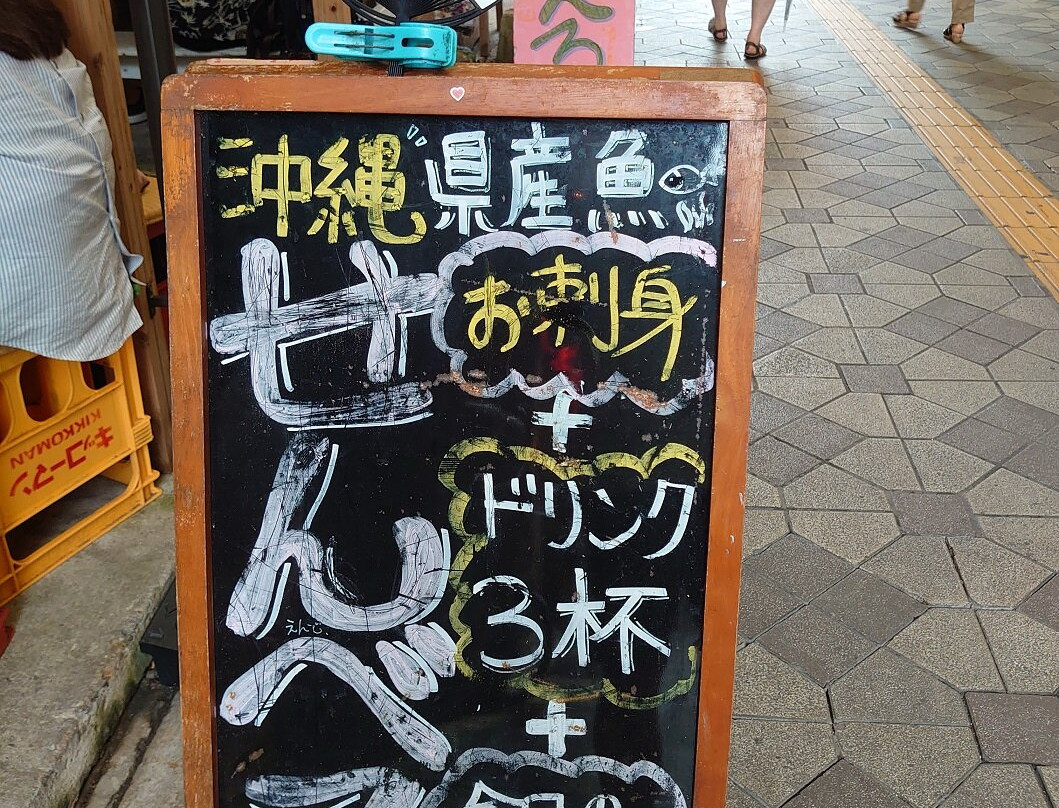 沖縄県産魚
せんべ
お刺身
+
ドリンク
3杯
+
キッコーマン
KIKKOMAN